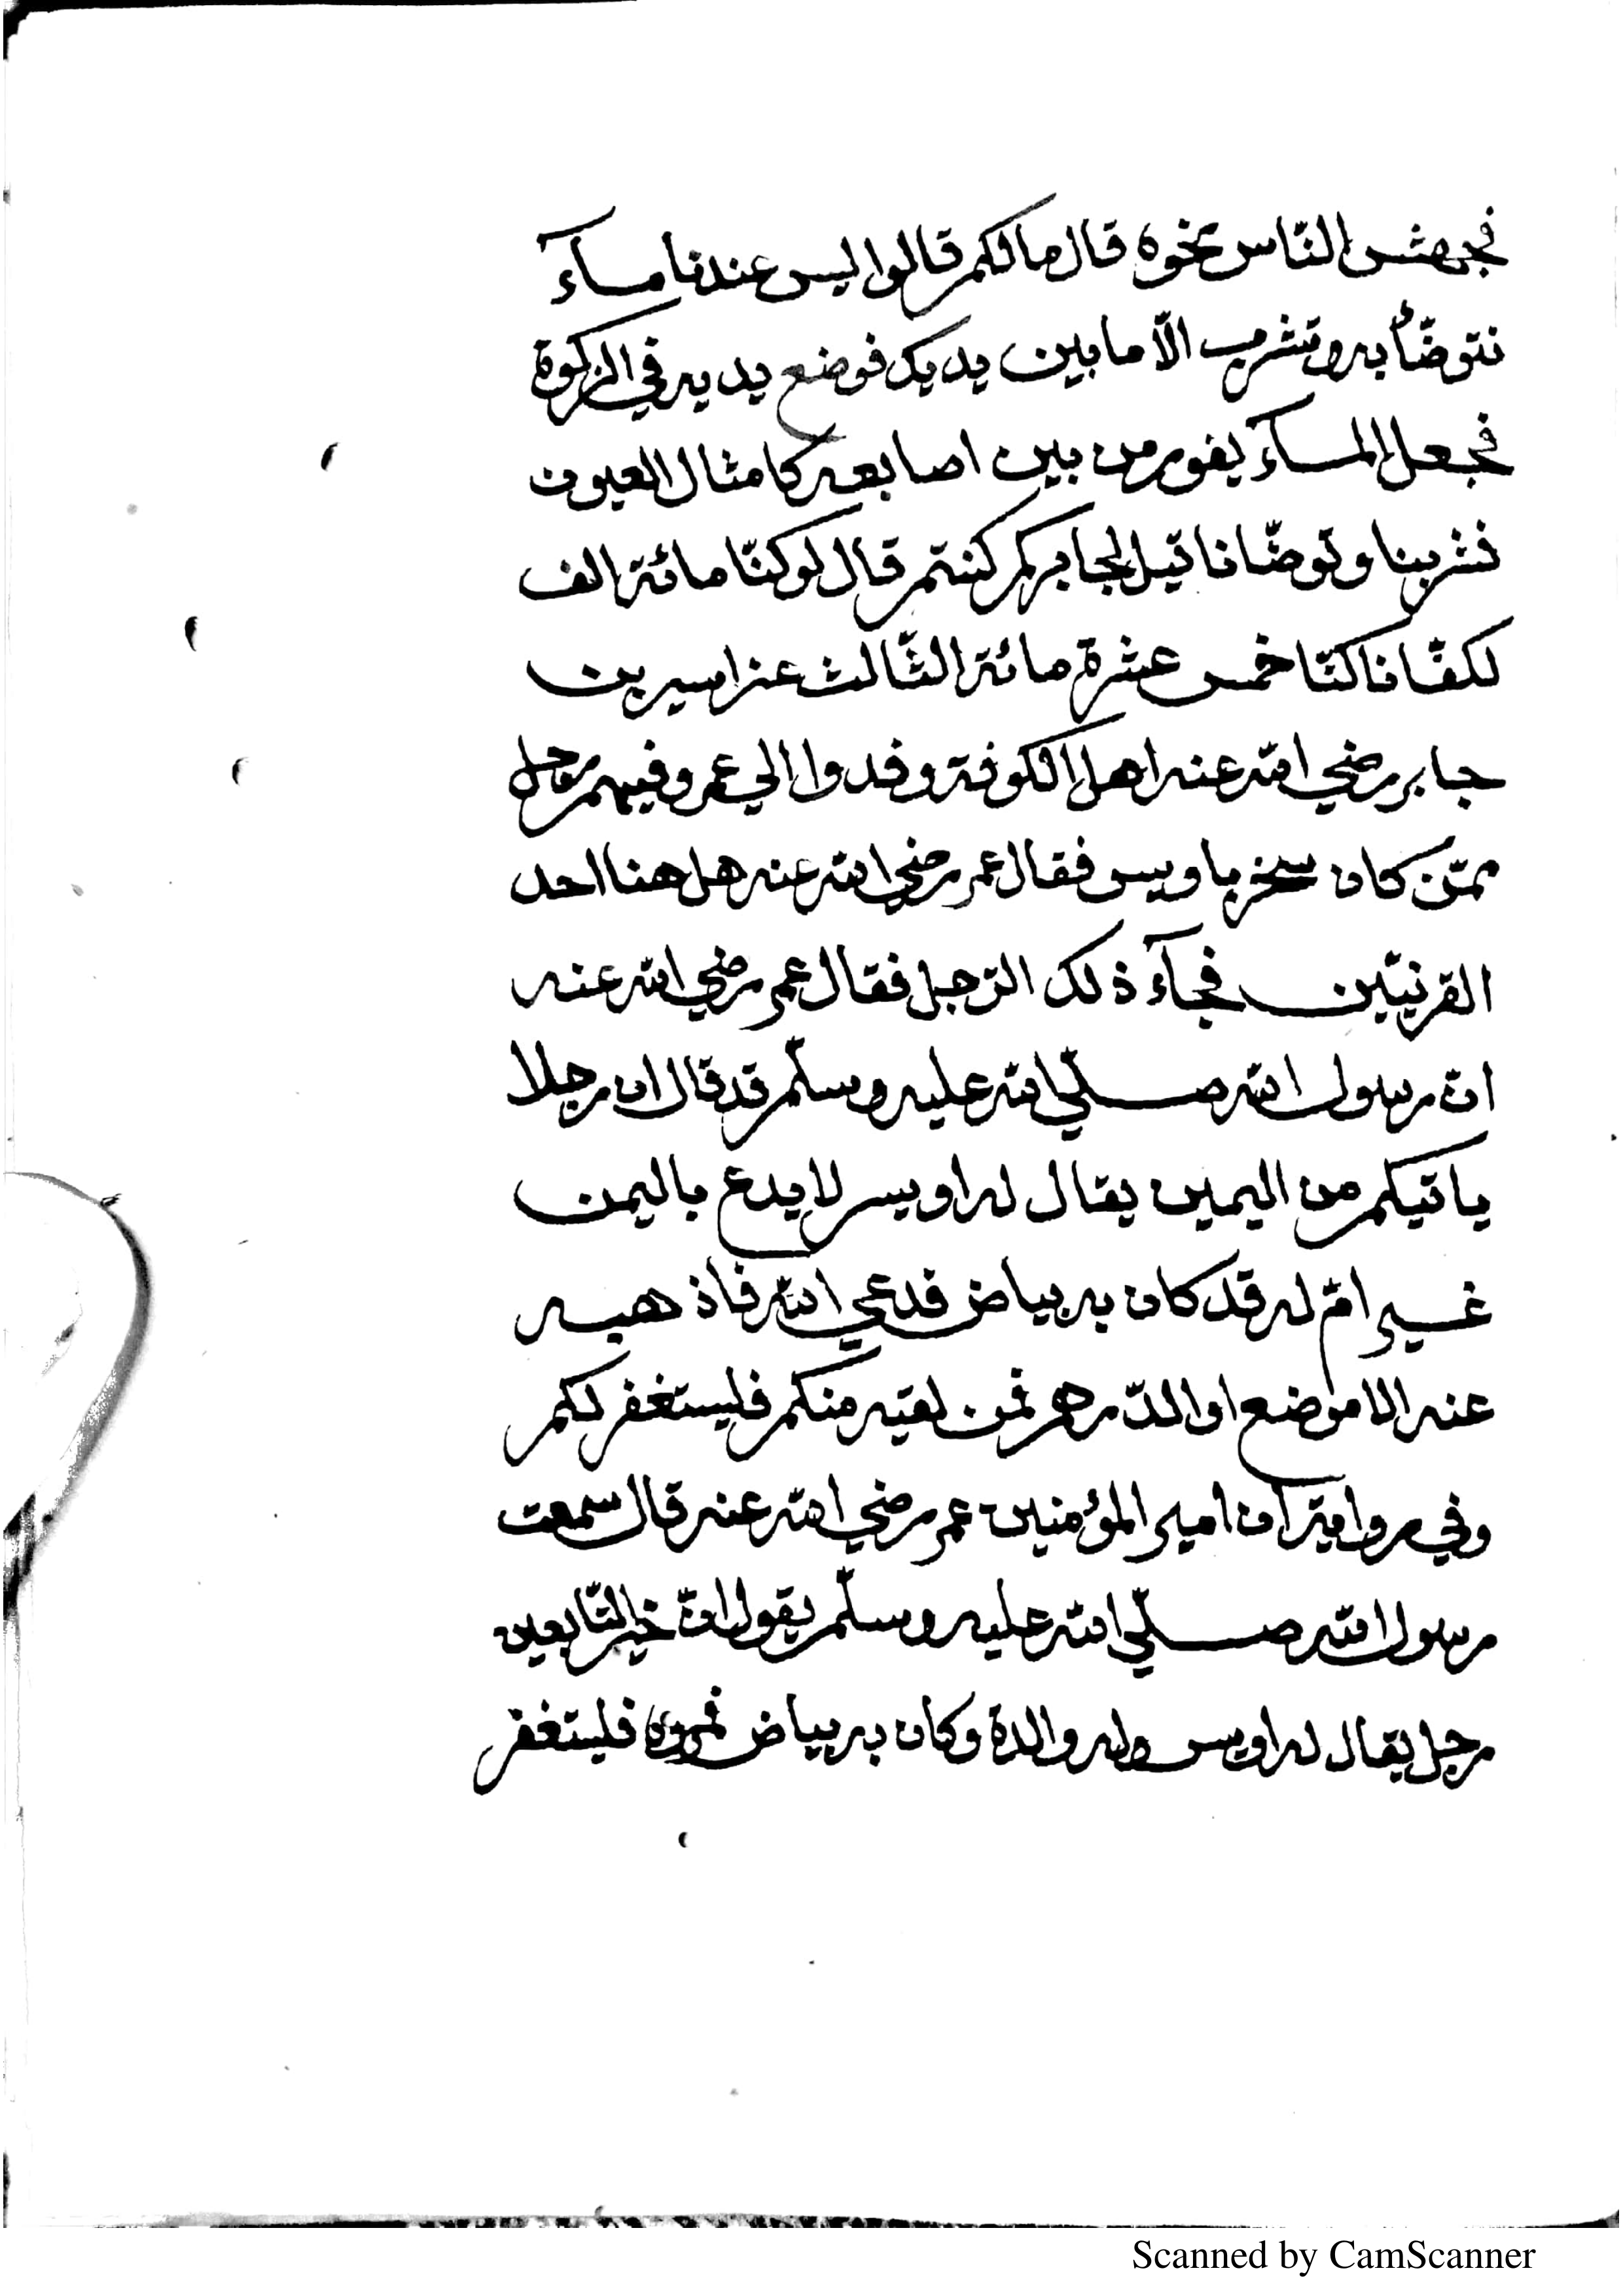 فجهش النّاس نحوه قال مالكم قالوا ليس عندنا مآء
نتوضّأ به ونشرب الّا ما بين يديك فوضع يديه في الركوة
فجعل المآء يفور من بين اصابعه كامثال العيون
فشربنا وتوضّانا قيل لجابر كم كنتم قال لو كنّا مائة الف
لكفانا كنّا خمس عشرة مائة الثّالث عن اسير بن
جابر رضي الله عنه اهل الكوفة وفدوا الي عمر وفيهم رجل
ممّن كان سخر باويس فقال عمر رضي الله عنه هل هنا احد
القرنيّين فجآء ذلك الرّجل فقال عمر رضي الله عنه
انّ رسول الله صلّي الله عليه وسلّم قد قال ان رجلا
ياتيكم من اليمين يقال له اويس لا يدع باليمن
غير امّ له قد كان به بياض فدعي الله فاذهبه
عنه الا موضع او الدّرهم فمن لقيه منكم فليستغفر لكم
وفي رواية ان امير المؤمنين عمر رضي الله عنه قال سمعت
رسول الله صلّي الله عليه وسلّم يقول انّ خير التّابعين
رجل يقال له اويس وله والدة وكان به بياض فمروه فليستغفر
Scanned by CamScanner